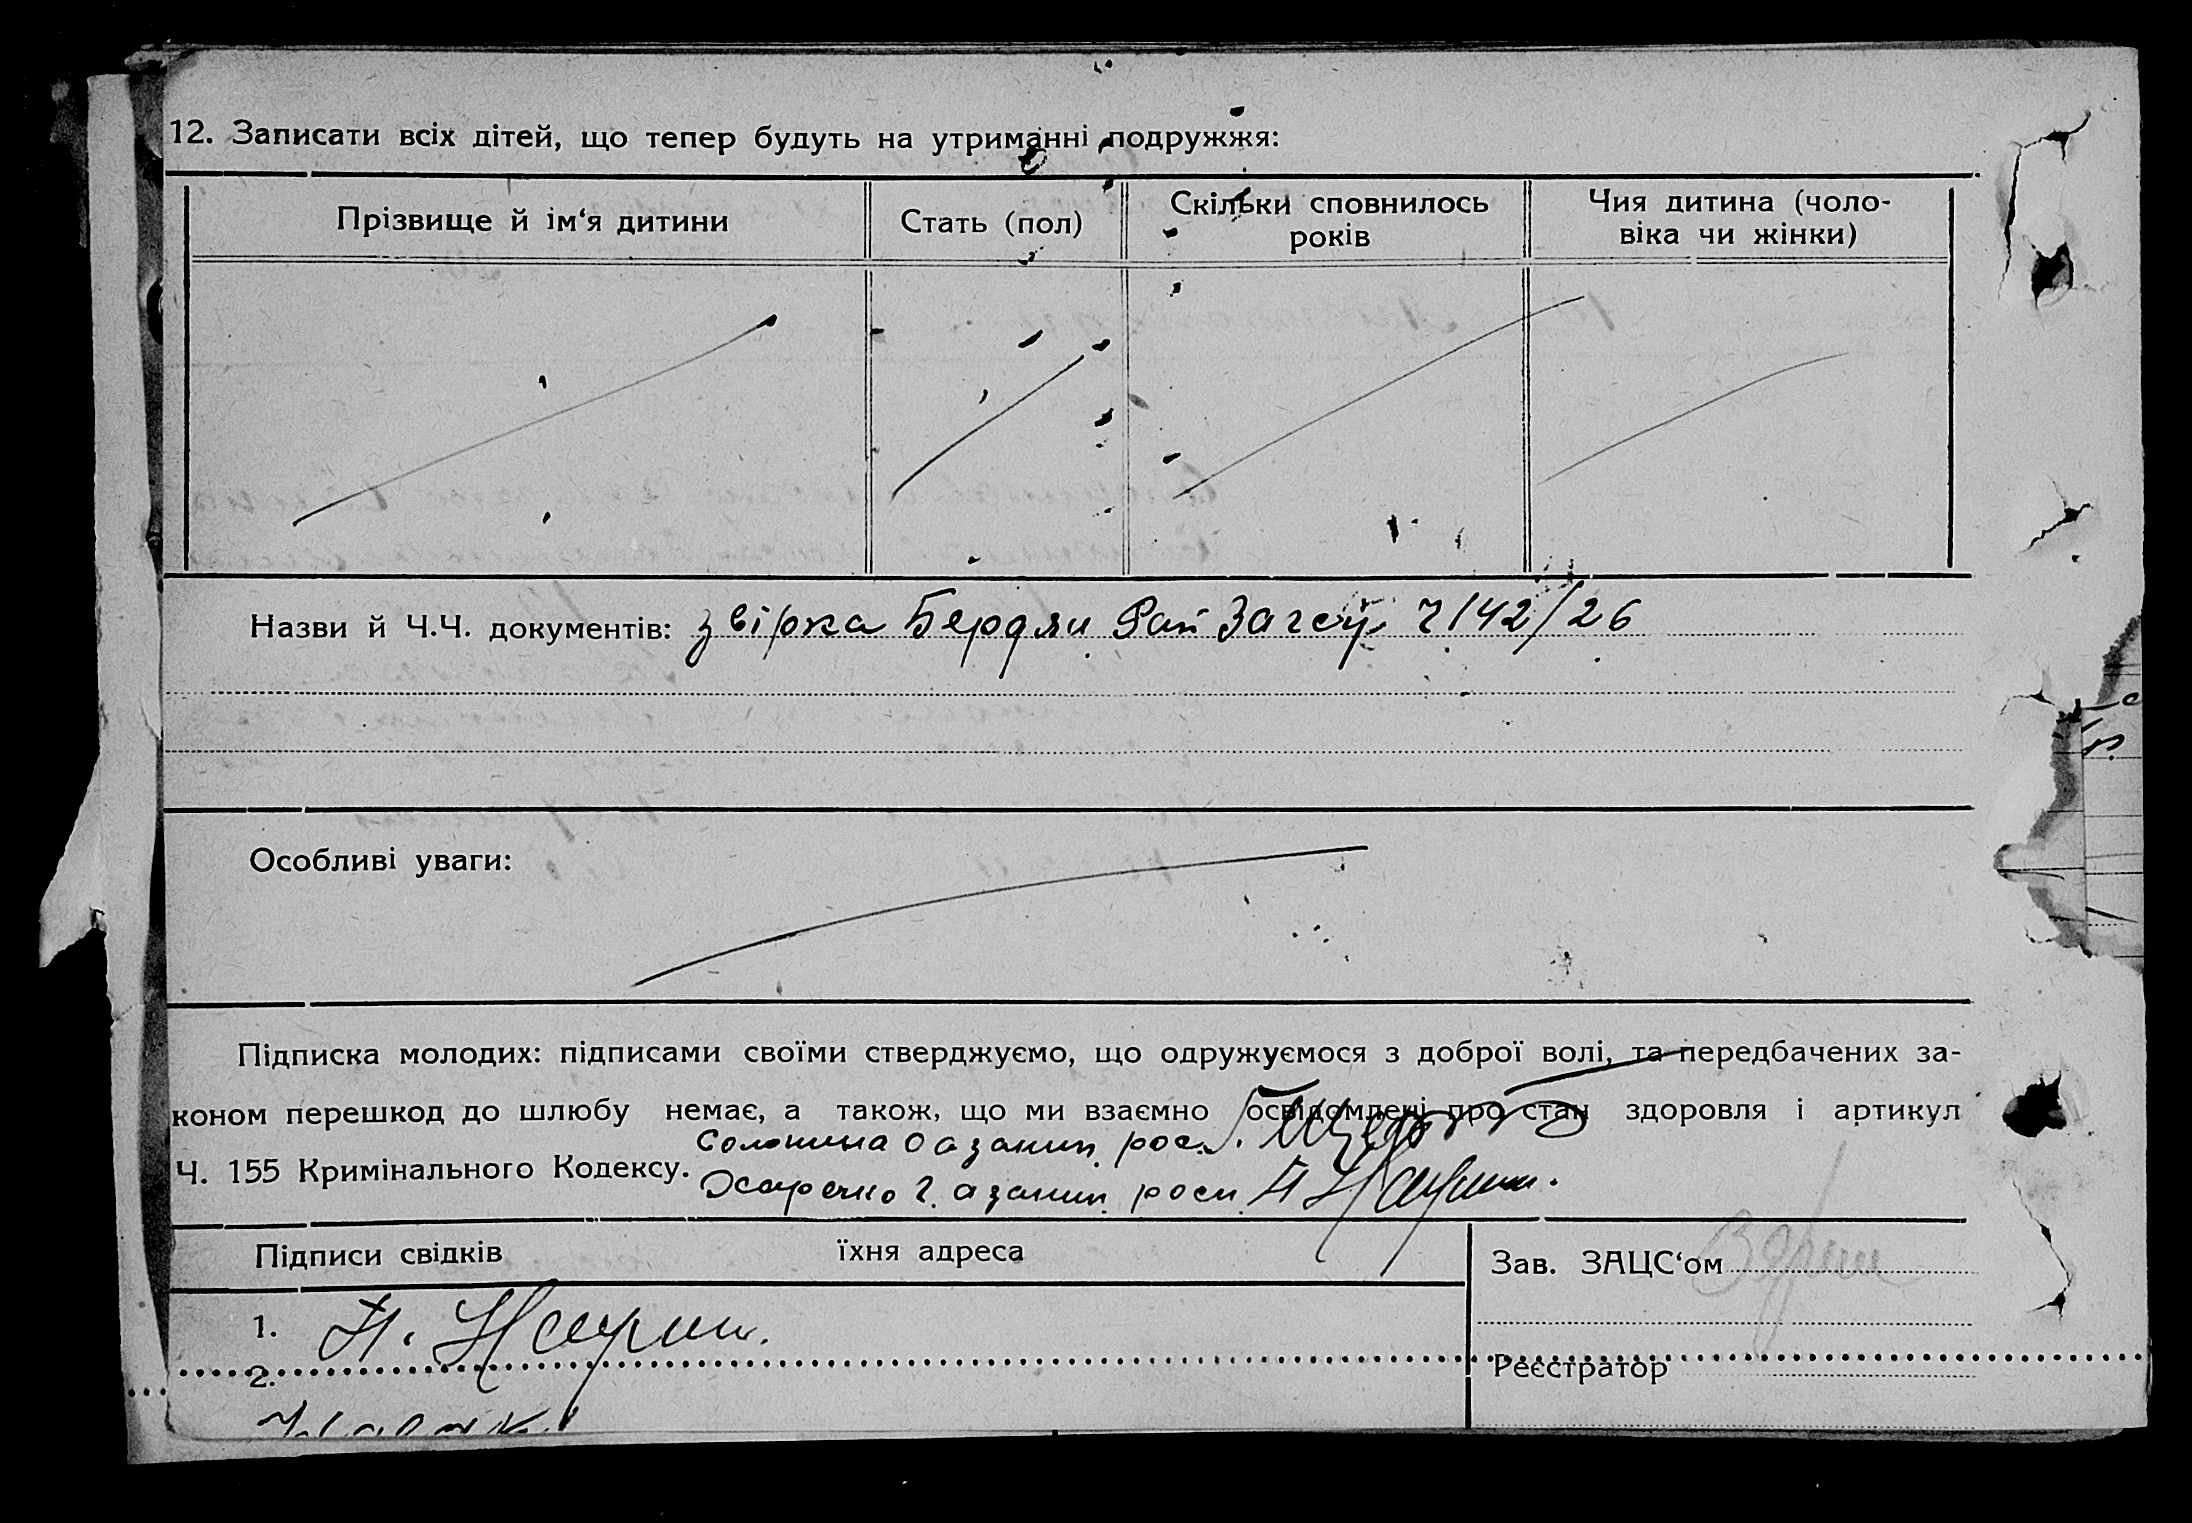 12. Записати всіх дітей, що тепер будуть на утриманні подружжя:
Прізвище й ім‘я дитини
Стать (пол)
Скільки сповнилось
років
Чия дитина (чоло-
віка чи жінки)
Назви й Ч.Ч. документів: звірка Бердян Рай Загсу ч 142/26
Особливі уваги:
Підписка молодих: підписами своїми стверджуємо, що одружуємося з доброї волі, та передбачених за-
коном перешкод до шлюбу немає, а також, що ми взаємно освідомлені про стан здоровля і артикул
Ч. 155 Кримінального Кодексу.
Підписи свідків
їхня адреса
Зав. ЗАЦС‘ом
1.
2.
Реєстратор